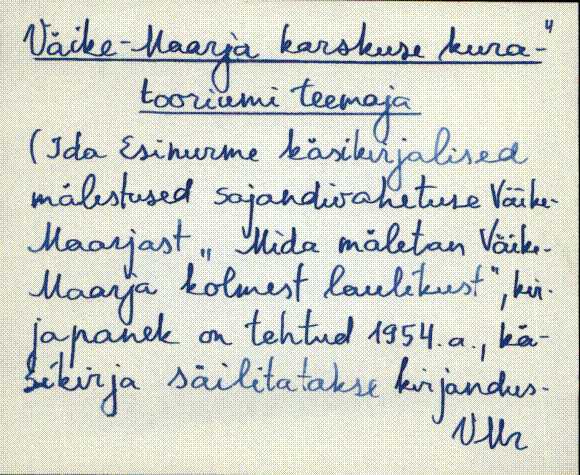 Väike-Maarja karskuse kura-"
tooriumi teemaja
(Ida Esinurme käsikirjalised
mälestused sajandivahetuse Väike-
Maarjast „Mida mäletan Väike-
Maarja kolmest laulikust", kir-
japanek on tehtud 1954.a., kä-
sikirja säilitatakse kirjandus-
VMr